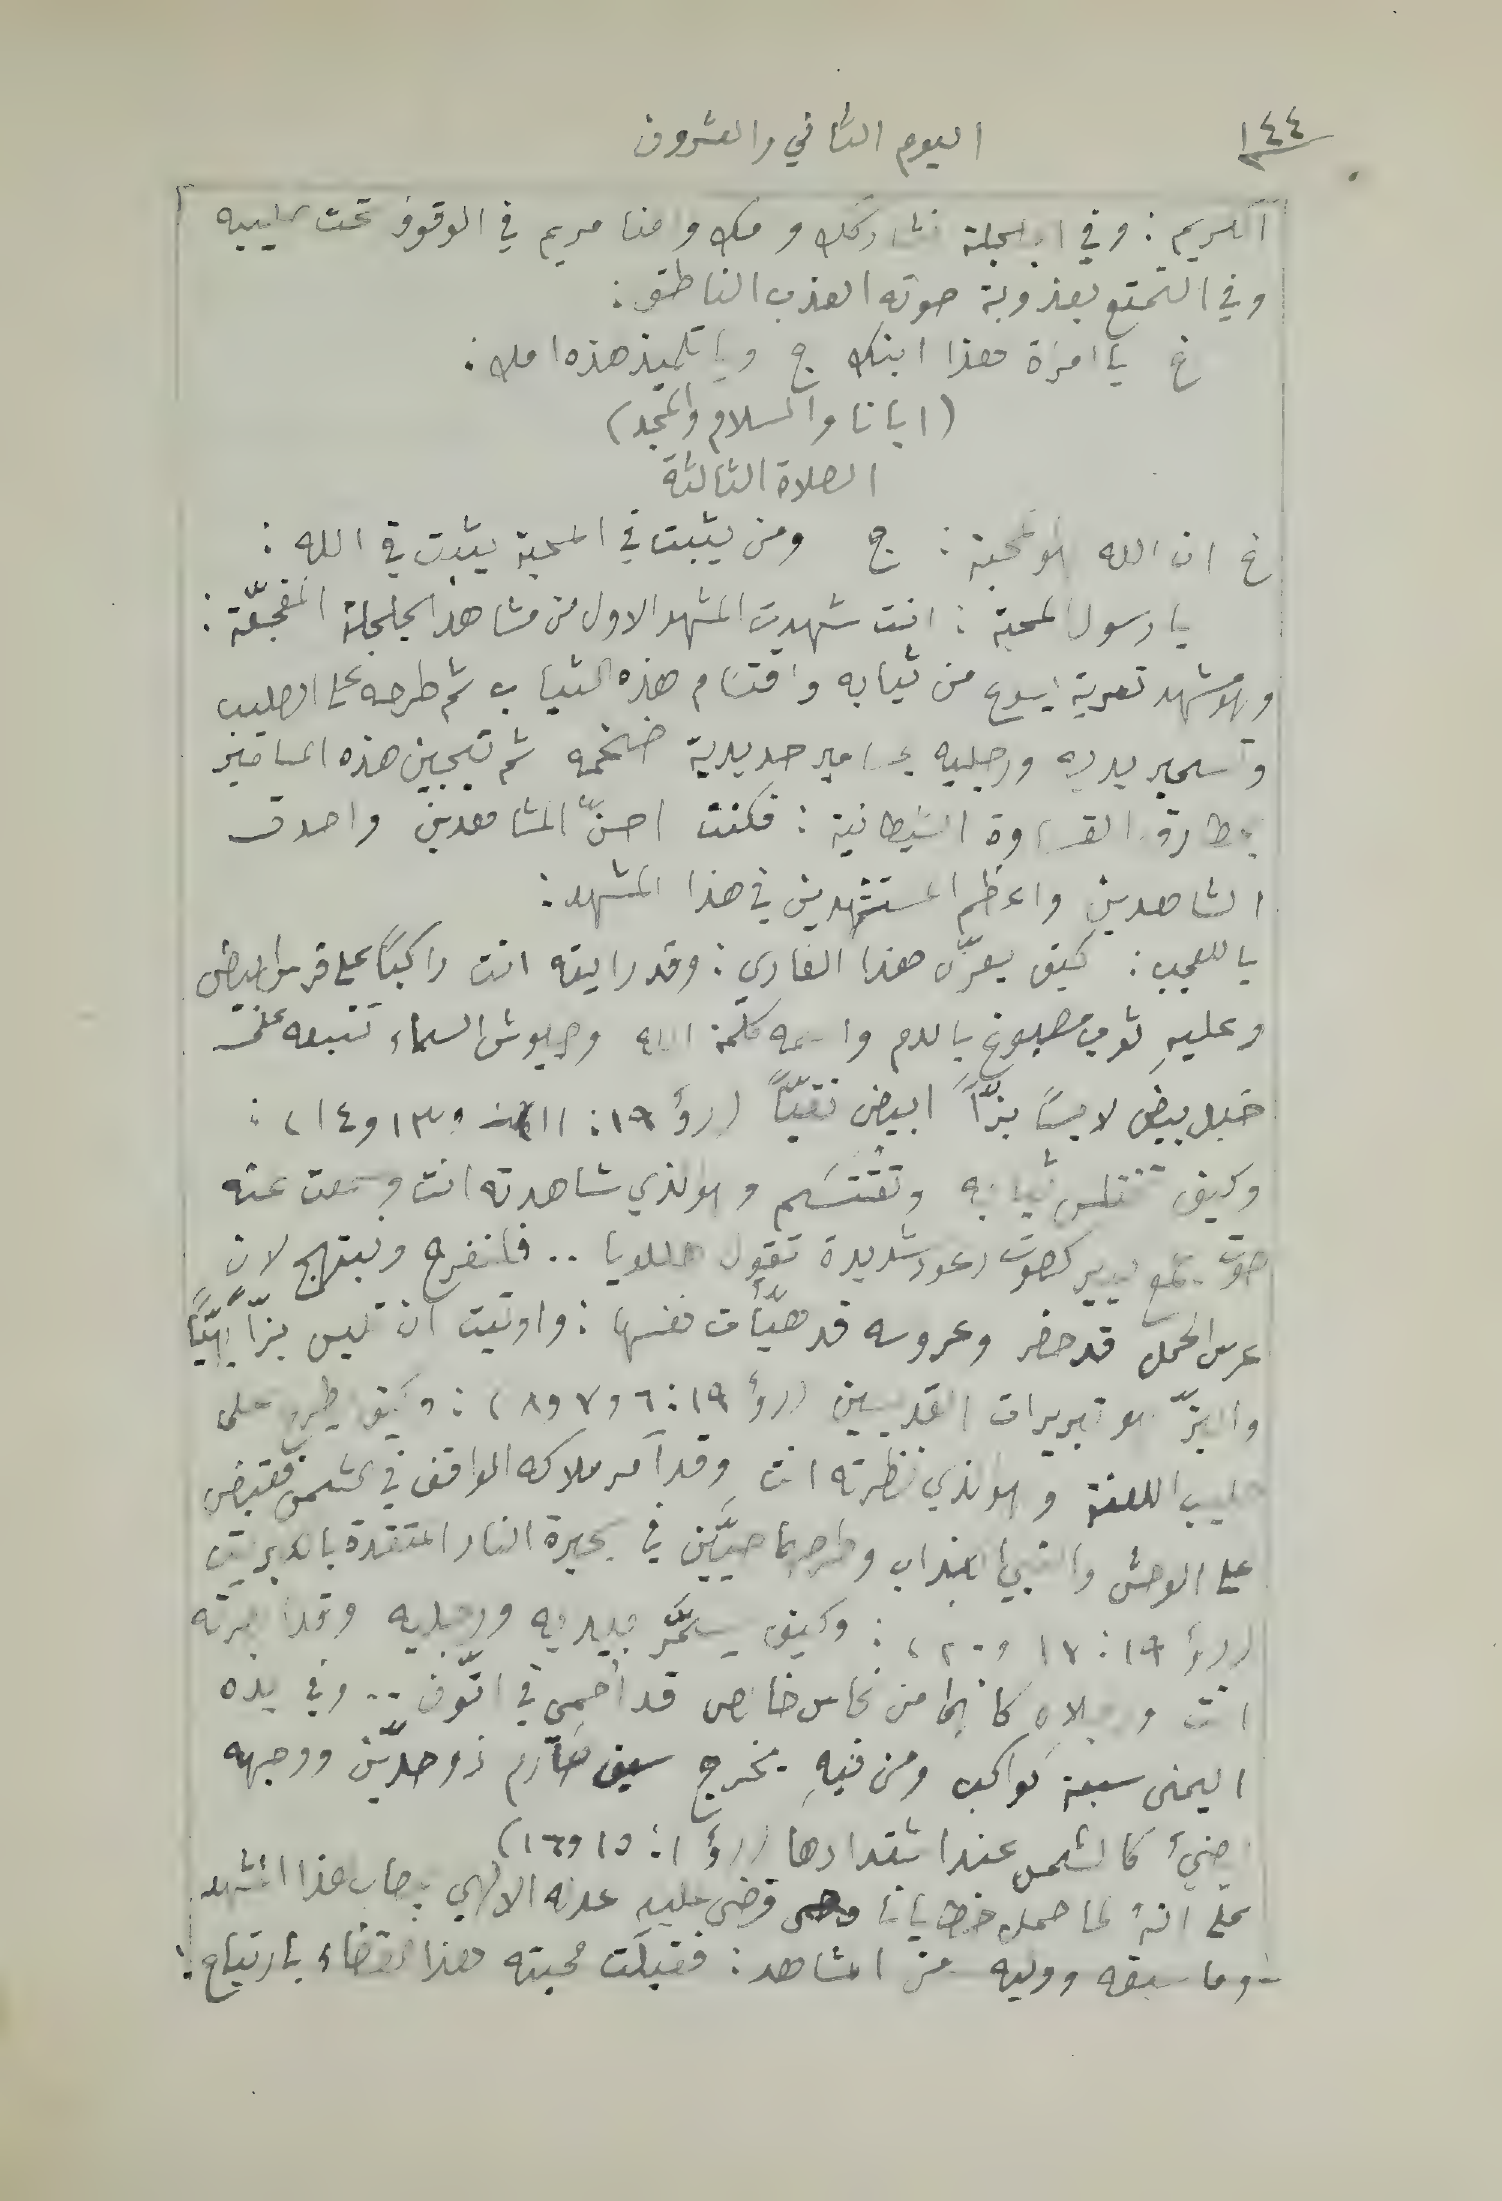 ١٤٤
اليوم الثاني والعشرون
الكريم : وفي الجلجلة نشاركك وامك وامنا مريم في الوقوف تحت صليبه
وفي التمتع بعذوبة صوته العذب الناطق :
خ يا امرأة هذا ابنك ج ويا تلميذ هذه امك :
(ابانا والسلام والمجد)
الصلاة الثالثة
خ ان الله هو محبة : ج ومن يثبت في المحبة يثبت في الله :
يا رسول المحبة : انت شهدت المشهد الاول من مشاهد الجلجلة المفجعّة :
وهو مشهد تعرية يسوع من ثيابه واقتسام هذه الثياب ثم طرحه على الصليب
وتسمير يديه ورجليه بمسامير حديدية ضخمه ثم تبجين هذه المسامير
بمطارق القساوة الشيطانية : فكنت احسّ المشاهدين واصدق
الشاهدين واعظم المستشهدين في هذا المشهد :
يا للعجب : كيف يعرّى هذا الفادي : وقد رايته انت راكبًا على فرس ابيض
وعليهِ ثوب مصبوغ بالدم واسمه كلمة الله وجيوش السماء تتبعه على
خيل بيض لابسًا بزًّا ابيض نقيًّا (رؤ ١٩: ١١ و١٣ و١٤) :
وكيف تختلس ثيابه وتُقتَسَم وهو الذي شاهدته انت وسمعت عنه
صوت جمع كصوت رعود شديدة تقول هللويا .. فلنفرح ونبتهج لان
عرس الحمل قد حضر وعروسه قد هيّأت نفسها : واوتيت ان تلبس بزًّا بهيًّا
والبزّ هو تبريرات القديسين (رؤ ١٩: ٦ و٧ و٨) : وكيف طرح على
صليب اللعنة وهو الذي نظرته انت وقد أمر ملاكه الواقف في الشمس فقبض
على الوحش والنبي الكذاب وطرحهما حيَّين في بحيرة النار المتقدة بالكبريت
(رؤ ١٩: ١٧ و٢٠) : وكيف يسمَّر بيديه ورجليه وقد ابصرته
انت ورجلاه كأنهما من نحاس خالص قد أُحمي في اتّون .. وفي يده
اليمنى سبعة كواكب ومن فيهِ يخرج سيف صارم ذو حدَّين ووجهه
يضيءُ كالشمس عند اشتدادها (رؤ ١: ١٥ و١٦)
على انهُ لما حمل خطايانا قضى عليه عدله الالهي بمصاب هذا المشهد
وما سبقه ووليه من المشاهد : فقبلَت محبته هذا القضاء بارتياح :